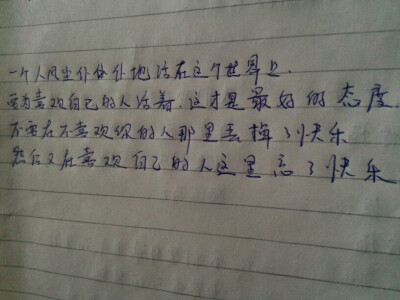 一个人风尘仆仆地活在这个世界上.
要为喜欢自己的人活着.这才是最好的态度
不要在不喜欢你的人那里丢掉了快乐
然后又在喜欢自己的人这里忘了快乐